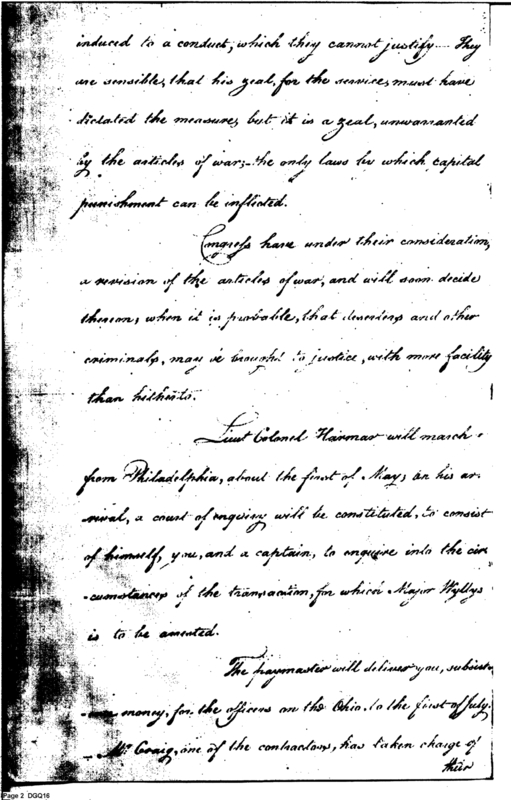 induced to a conduct, which they cannot justify — They
are sensible, that his zeal, for the service, must have
dictated the measure, but it is a zeal, unwarranted
by the articles of war; the only laws by which capital
punishment can be inflicted.
Congress have under their consideration,
a revision of the articles of war, and will soon decide
thereon, when it is probable, that deserters and other
criminals, may be brought to justice, with more facility
than hitherto.
Lieut Colonel Harmar will march
from Philadelphia, about the first of May; on his ar
-rival, a court of enquiry will be constituted, to consist
of himself, you, and a captain, to enquire into the cir
-cumstances of the transaction, for which Major Wyllys
is to be arrested.
The paymaster will deliver you, subsist
money, for the officers on the Ohio, to the first of July.
Mr Craig, one of the contractors, has taken charge of
their
Page 2 DGQ16